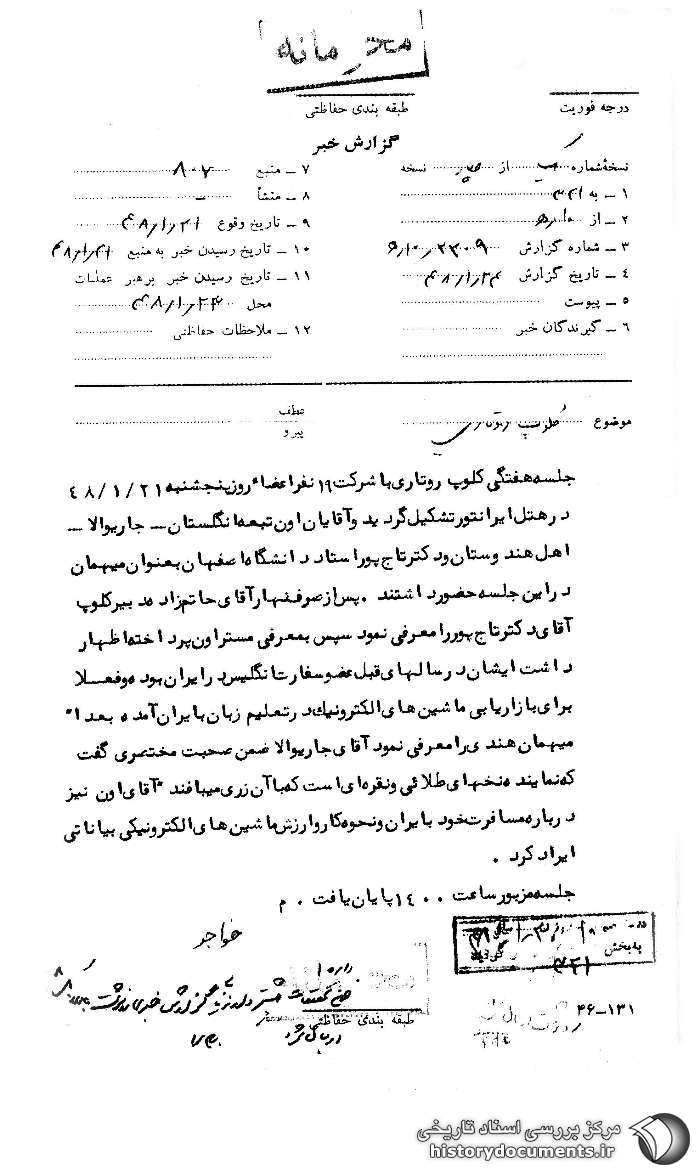 محرمانه
درجه فوریت
طبقه بندی حفاظتی
گزارش خبر
نسخهٔ شماره از نسخه
۱ ـ به ۳۴۱
۲ ـ از ۱۰ﻫ
۳ ـ شماره گزارش
۴ ـ تاریخ گزارش ۴۸/۱/۲۴
۵ ـ پیوست
۶ ـ گیرندگان خبر
۷ ـ منبع ۸۰۷
۸ ـ منشأ
۹ ـ تاریخ وقوع ۴۸/۱/۲۱
۱۰ ـ تاریخ رسیدن خبر به منبع ۴۸/۱/۲۱
۱۱ ـ تاریخ رسیدن خبر برهبر عملیات
محل ۴۸/۱/۲۴
۱۲ ـ ملاحظات حفاظتی
موضوع کلوپ روتاری
عطف
پیرو
جلسه هفتگی کلوپ روتاری با شرکت ۱۹ نفر اعضاء روز پنجشنبه ۴۸/۱/۲۱
در هتل ایرانتور تشکیل گردید و آقایان اون تبعه انگلستان ـ جاریوالا ـ
اهل هندوستان و دکتر تاج پور استاد دانشگاه اصفهان بعنوان میهمان
در این جلسه حضور داشتند . پس از صرف نهار آقای حاتم زاده دبیر کلوپ
آقای دکتر تاج پور را معرفی نمود سپس بمعرفی مستر اون پرداخته اظهار
داشت ایشان در سالهای قبل عضو سفارت انگلیس در ایران بوده و فعلا
برای بازاریابی ماشین های الکترونیک در تعلیم زبان بایران آمده بعداً
میهمان هندی را معرفی نمود آقای جاریوالا ضمن صحبت مختصری گفت
که نماینده نخهای طلائی و نقره ای است که با آن زری میبافند آقای اون نیز
درباره مسافرت خود بایران و نحوه کار و ارزش ماشین های الکترونیکی بیاناتی
ایراد کرد .
جلسه مزبور ساعت ۱۴۰۰ پایان یافت . م
به بخش ۳۴۱
محرمانه
طبقه بندی حفاظتی
۴۶-۱۳۱
مرکز بررسی اسناد تاریخی
historydocuments.ir